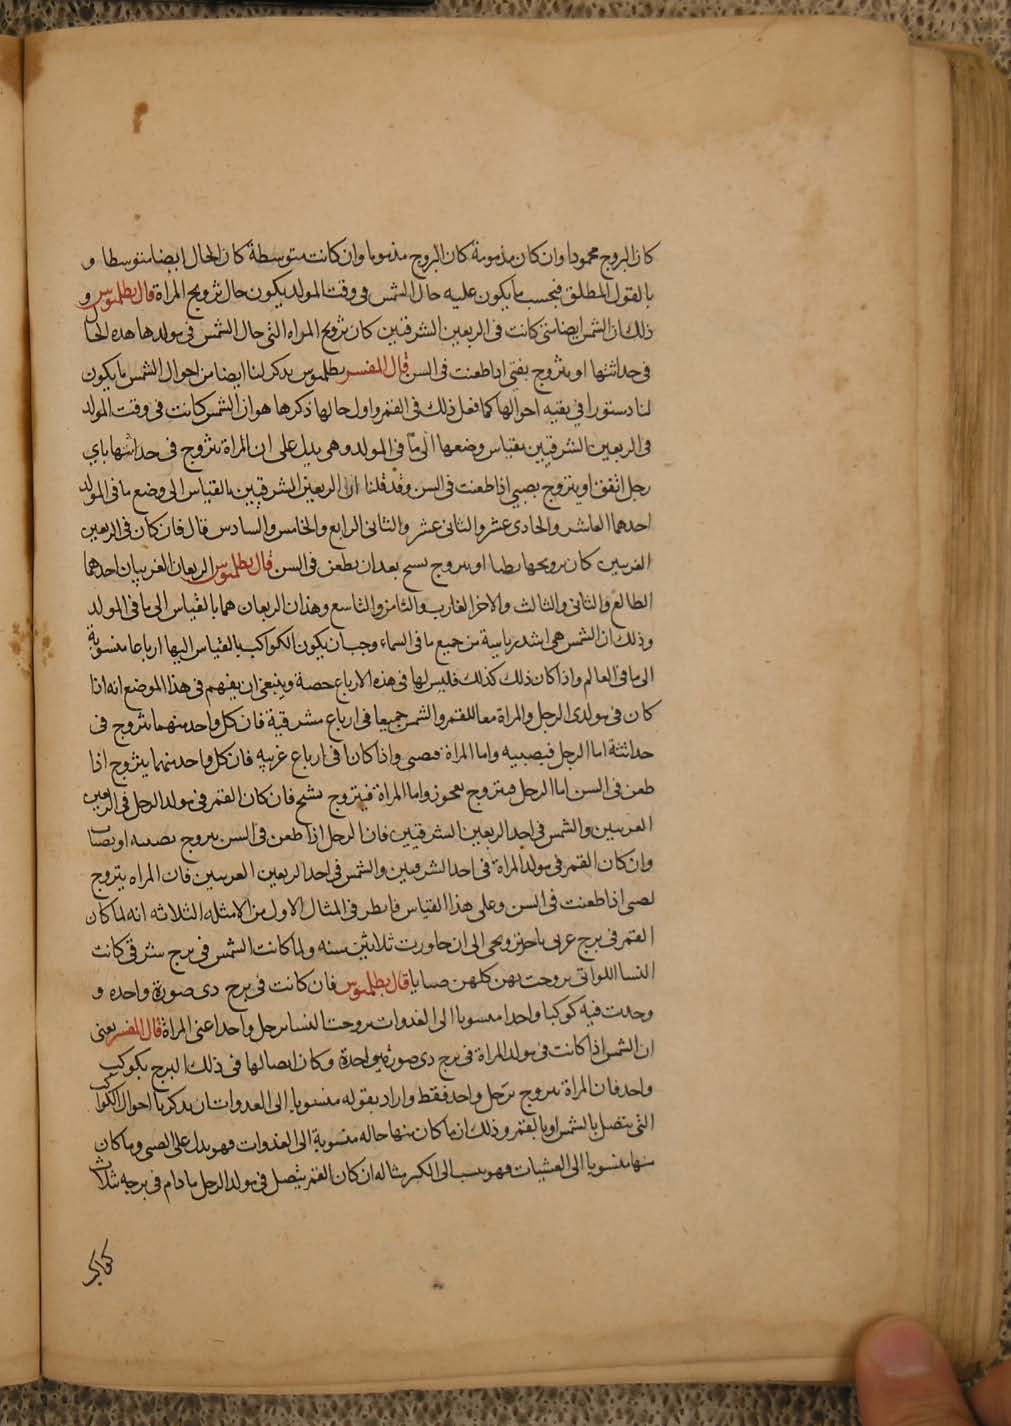 كان التزويج محمودا وان كان مذمومة كان التزويج مذموما وان كانت متوسطة كان الحال ايضا متوسطا و
بالقول المطلق فبحسب ما يكون عليه حال الشمس في وقت المولد يكون حال تزويج المراة قال بطلميوس و
ذلك ان الشمس ايضا متى كانت في الربعين الشرقيين كان تزويج المراه التي حال الشمس في مولدها هذه الحال
في حداثتها او يتزوج بفتي اذا طعنت في السن قال المفسر بطلميوس يذكر لنا ايضا من احوال الشمس ما يكون
لنا دستورا في بقيه احوالها كما فعل ذلك في القمر واول حالها ذكرها هو ان الشمس كانت في وقت المولد
في الربعين الشرقيين بقياس وضعها الى ما في المولد وهى يدل على ان المراة تتزوج في حداثتها باي
رجل اتفق او يتزوج بصبي اذا طعنت في السن وقد قلنا ان الربعين الشرقيين بالقياس الى وضع ما في المولد
احدهما العاشر والحادى عشر والثانى عشر والثانى الرابع والخامس والسادس قال فان كان في الربعين
الغربيين كان تزويجها بطيا او يتزوج بشيخ بعد ان يطعن في السن قال بطلميوس الربعان الغربيان احدهما
الطالع والثانى والثالث والاخر الغارب والثامن والتاسع وهذان الربعان هما بالقياس الى ما في المولد
وذلك ان الشمس هى اشد رياسة من جميع ما في السماء وجب ان يكون الكواكب بالقياس اليها ارباعا منسوبة
الى ما في العالم واذا كان ذلك كذلك فليس لها في هذه الارباع حصة وينبغى ان يفهم في هذا الموضع انه اذا
كان في مولدى الرجل والمراة معا للقمر والشمس جميعا في ارباع مشرقية فان كل واحد منهما يتزوج في
حداثته اما الرجل فبصبيه واما المراة فبصبى واذا كانا في ارباع غربيه فان كل واحد منهما يتزوج اذا
طعن في السن اما الرجل فيتزوج بعجوز واما المراة فيتزوج بشيخ فان كان القمر في مولد الرجل في الربعين
الغربيين والشمس في احد الربعين الشرقيين فان الرجل اذا طعن في السن يتزوج بصبيه او بصبايا
وان كان القمر في مولد المراة في احد الشرقيين والشمس في احد الربعين الغربيين فان المراه يتزوج
لصبى اذا طعنت في السن وعلى هذا القياس فانظر في المثال الاول من الامثله الثلاثه انه لما كان
القمر في برج غربى تاخر تزويجى الى ان جاورت ثلاثين سنه ولما كانت الشمس في برج شرقى كانت
النسا اللواتى تزوجت بهن كلهن صبايا قال بطلميوس فان كانت في برج ذى صورة واحده و
وجدت فيه كوكبا واحدا منسوبا الى الغدوات تزوجت النسا برجل واحد اعنى المراة قال المفسر يعنى
ان الشمس اذا كانت في مولد المراة في برج ذى صورة واحدة وكان اتصالها في ذلك البرج بكوكب
واحد فان المراة تتزوج برجل واحد فقط واراد بقوله منسوبا الى الغدوات ان يذكرنا احوال الكواكب
التى يتصل بالشمس او بالقمر وذلك ان ما كان منها حاله منسوبة الى الغدوات فهو يدل على الصبى وما كان
منها منسوبا الى العشيات فهو ينسب الى الكبر مثاله ان كان القمر يتصل في مولد الرجل ما دام في برجه بثلاث
كواكب